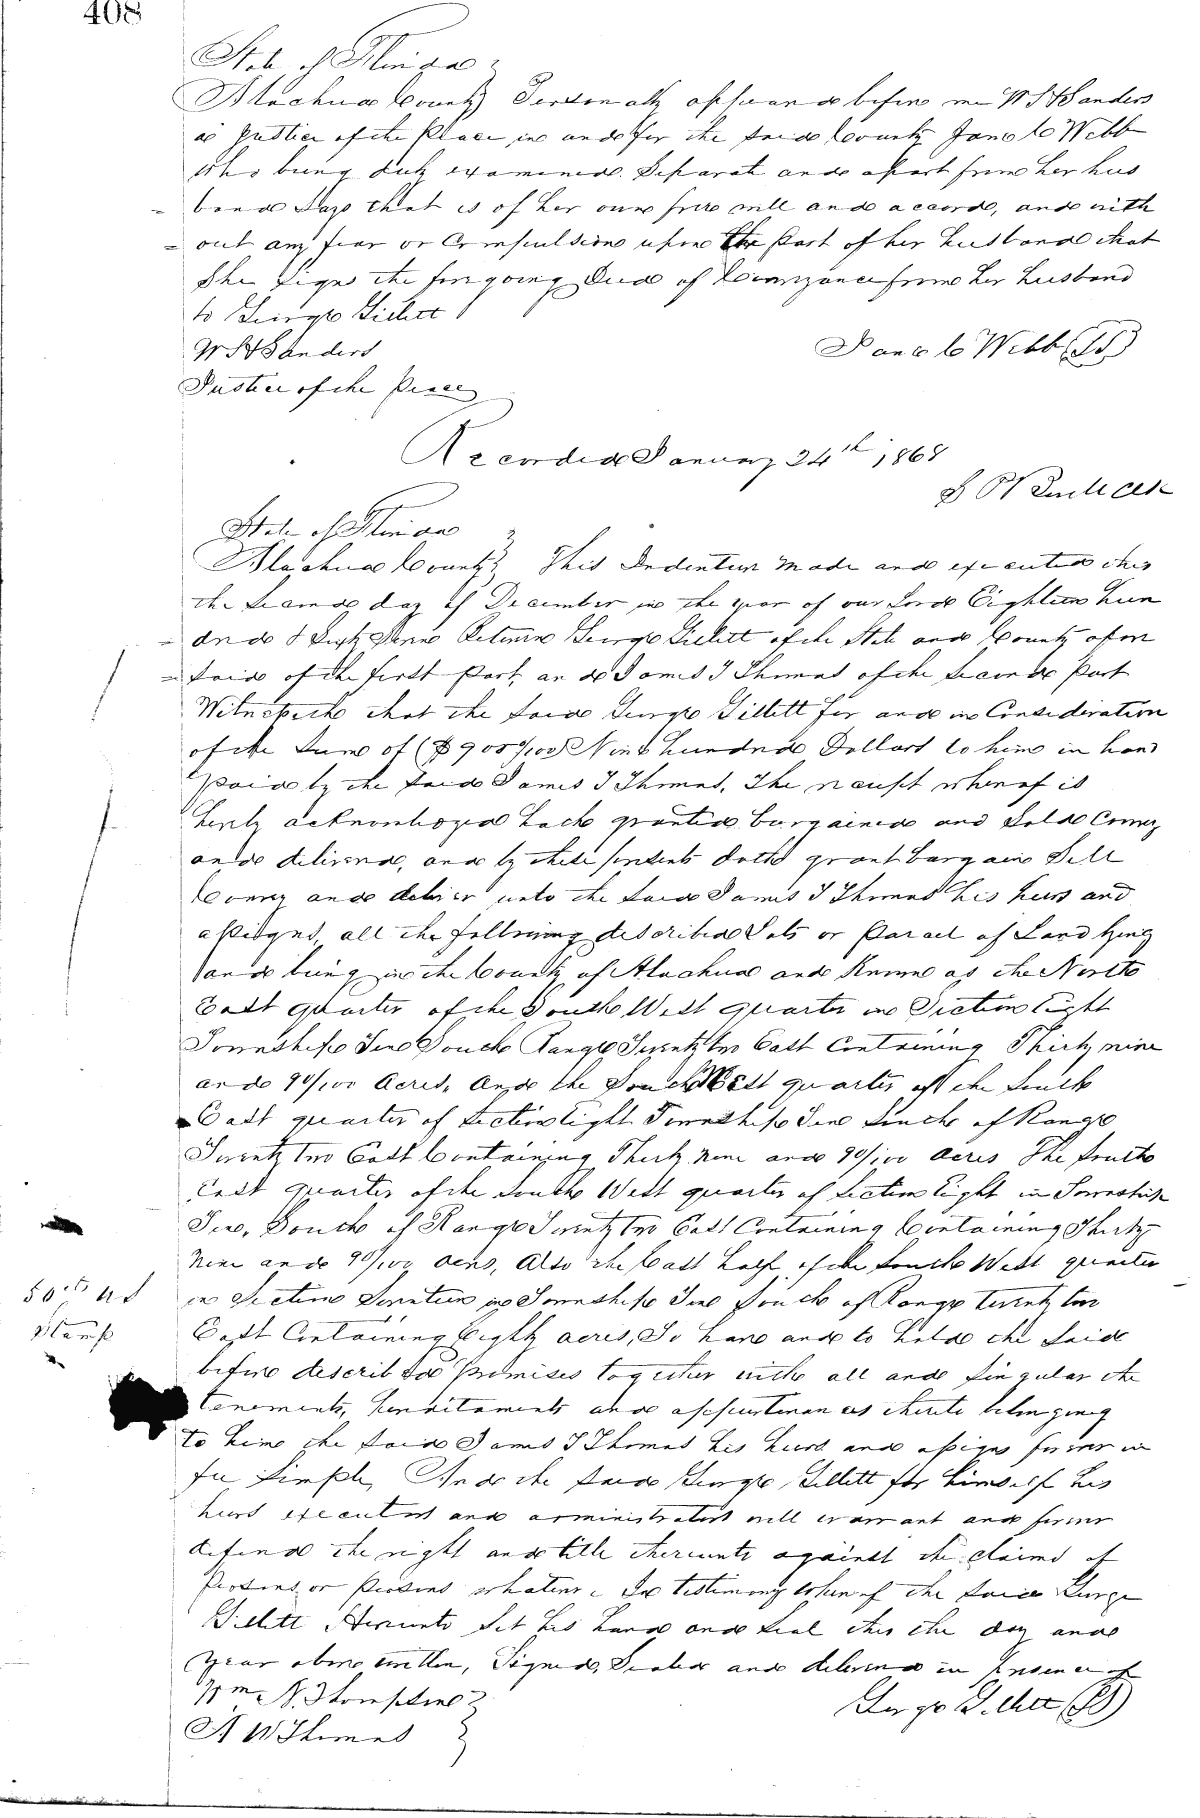 408
State of Florida
Alachua County Personally appeared before me W S H Sanders
a Justice of the Peace in and for the said County Jane C Webb
who being duly examined Separate and apart from her hus
band Says that is of her own free will and accord, and with
out any fear or Compulsion upon the Part of her husband that
She Signs the foregoing Deed of Conveyance from her husband
to George Gillett
W S H Sanders
Jane C Webb (LS)
Justice of the Peace
Recorded January 24th 1868
State of Florida
Alachua County This Indenture made and executed this
the Second day of December in the year of our Lord Eighteen hun
dred & Sixty Seven Between George Gillett of the State and County afore
said of the first Part, and James T Thomas of the Second Part
Witnesseth that the said George Gillett for and in Consideration
of the Sum of ($900 0/100) Nine hundred Dollars to him in hand
paid by the said James T Thomas, The receipt whereof is
hereby acknowledged hath granted bargained and Sold Convey
and delivered, and by these presents doth grant bargain Sell
Convey and deliver unto the said James T Thomas his heirs and
assigns, all the following described Lots or Parcel of Land lying
and being in the County of Alachua and Known as the North
East quarter of the South West quarter in Section Eight
Township Ten South Range Twenty two East Containing Thirty nine
and 90/100 Acres, And the South West quarter of the South
East quarter of Section Eight Township Ten South of Range
Twenty two East Containing Thirty Nine and 90/100 acres The South
East quarter of the South West quarter of Section Eight in Township
Ten, South of Range Twenty two East Containing Containing Thirty
Nine and 90/100 acres, Also the East half of the South West quarter
50 cts U S
Stamp
in Section Seventeen in Township Ten South of Range twenty two
East Containing Eighty acres, To have and to hold the said
before described Premises together with all and Singular the
tenements, hereditaments and appurtenances thereto belonging
to him the said James T Thomas his heirs and assigns forever in
fee Simple, And the said George Gillett for himself his
heirs executors and administrators will warrant and forever
defend the right and title thereunto against the claims of
Persons or Persons whatever In testimony whereof the said George
Gillett Hereunto Set his hand and Seal this the day and
Year above written, Signed, Sealed and delivered in Presence of
Wm N. Thompson
George Gillett (LS)
A W Thomas